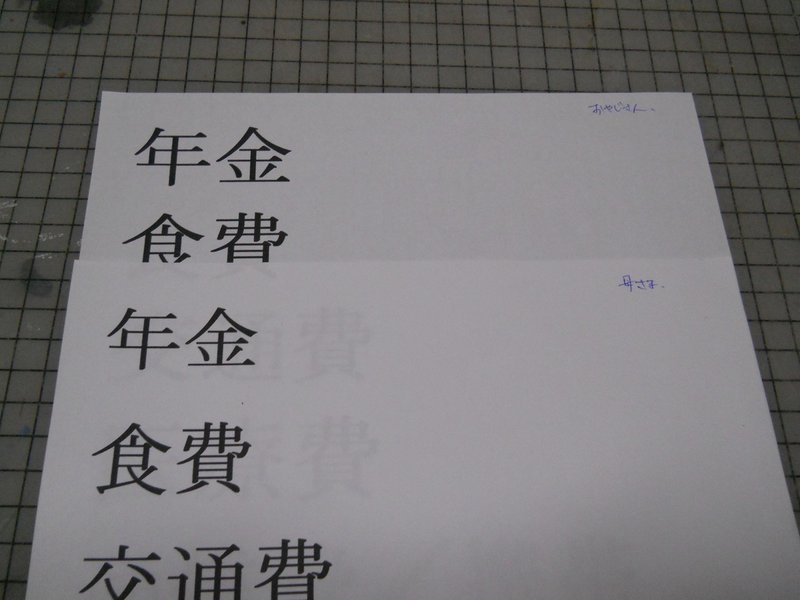 おやじさん、
年金
食費
年金
食費
交通費